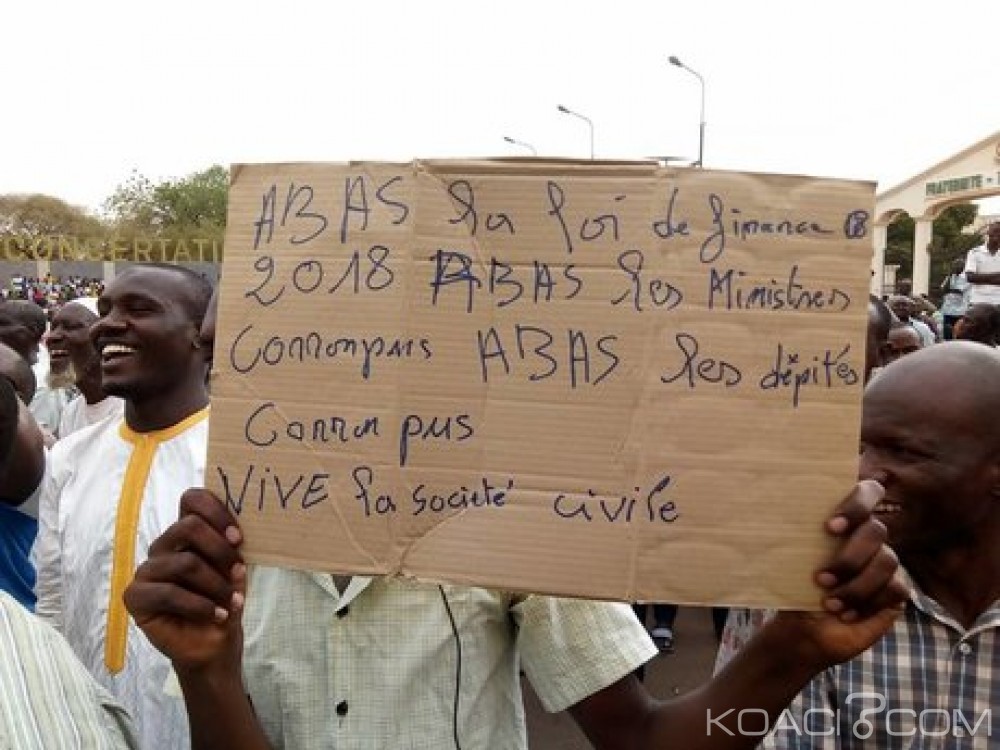 CONCERTATI
FRATERNITÉ - T
ABAS la loi de finance
2018 ABAS les Ministres
Corronpus ABAS les dépités
Corronpus
VIVE la société civile
KOACI.COM